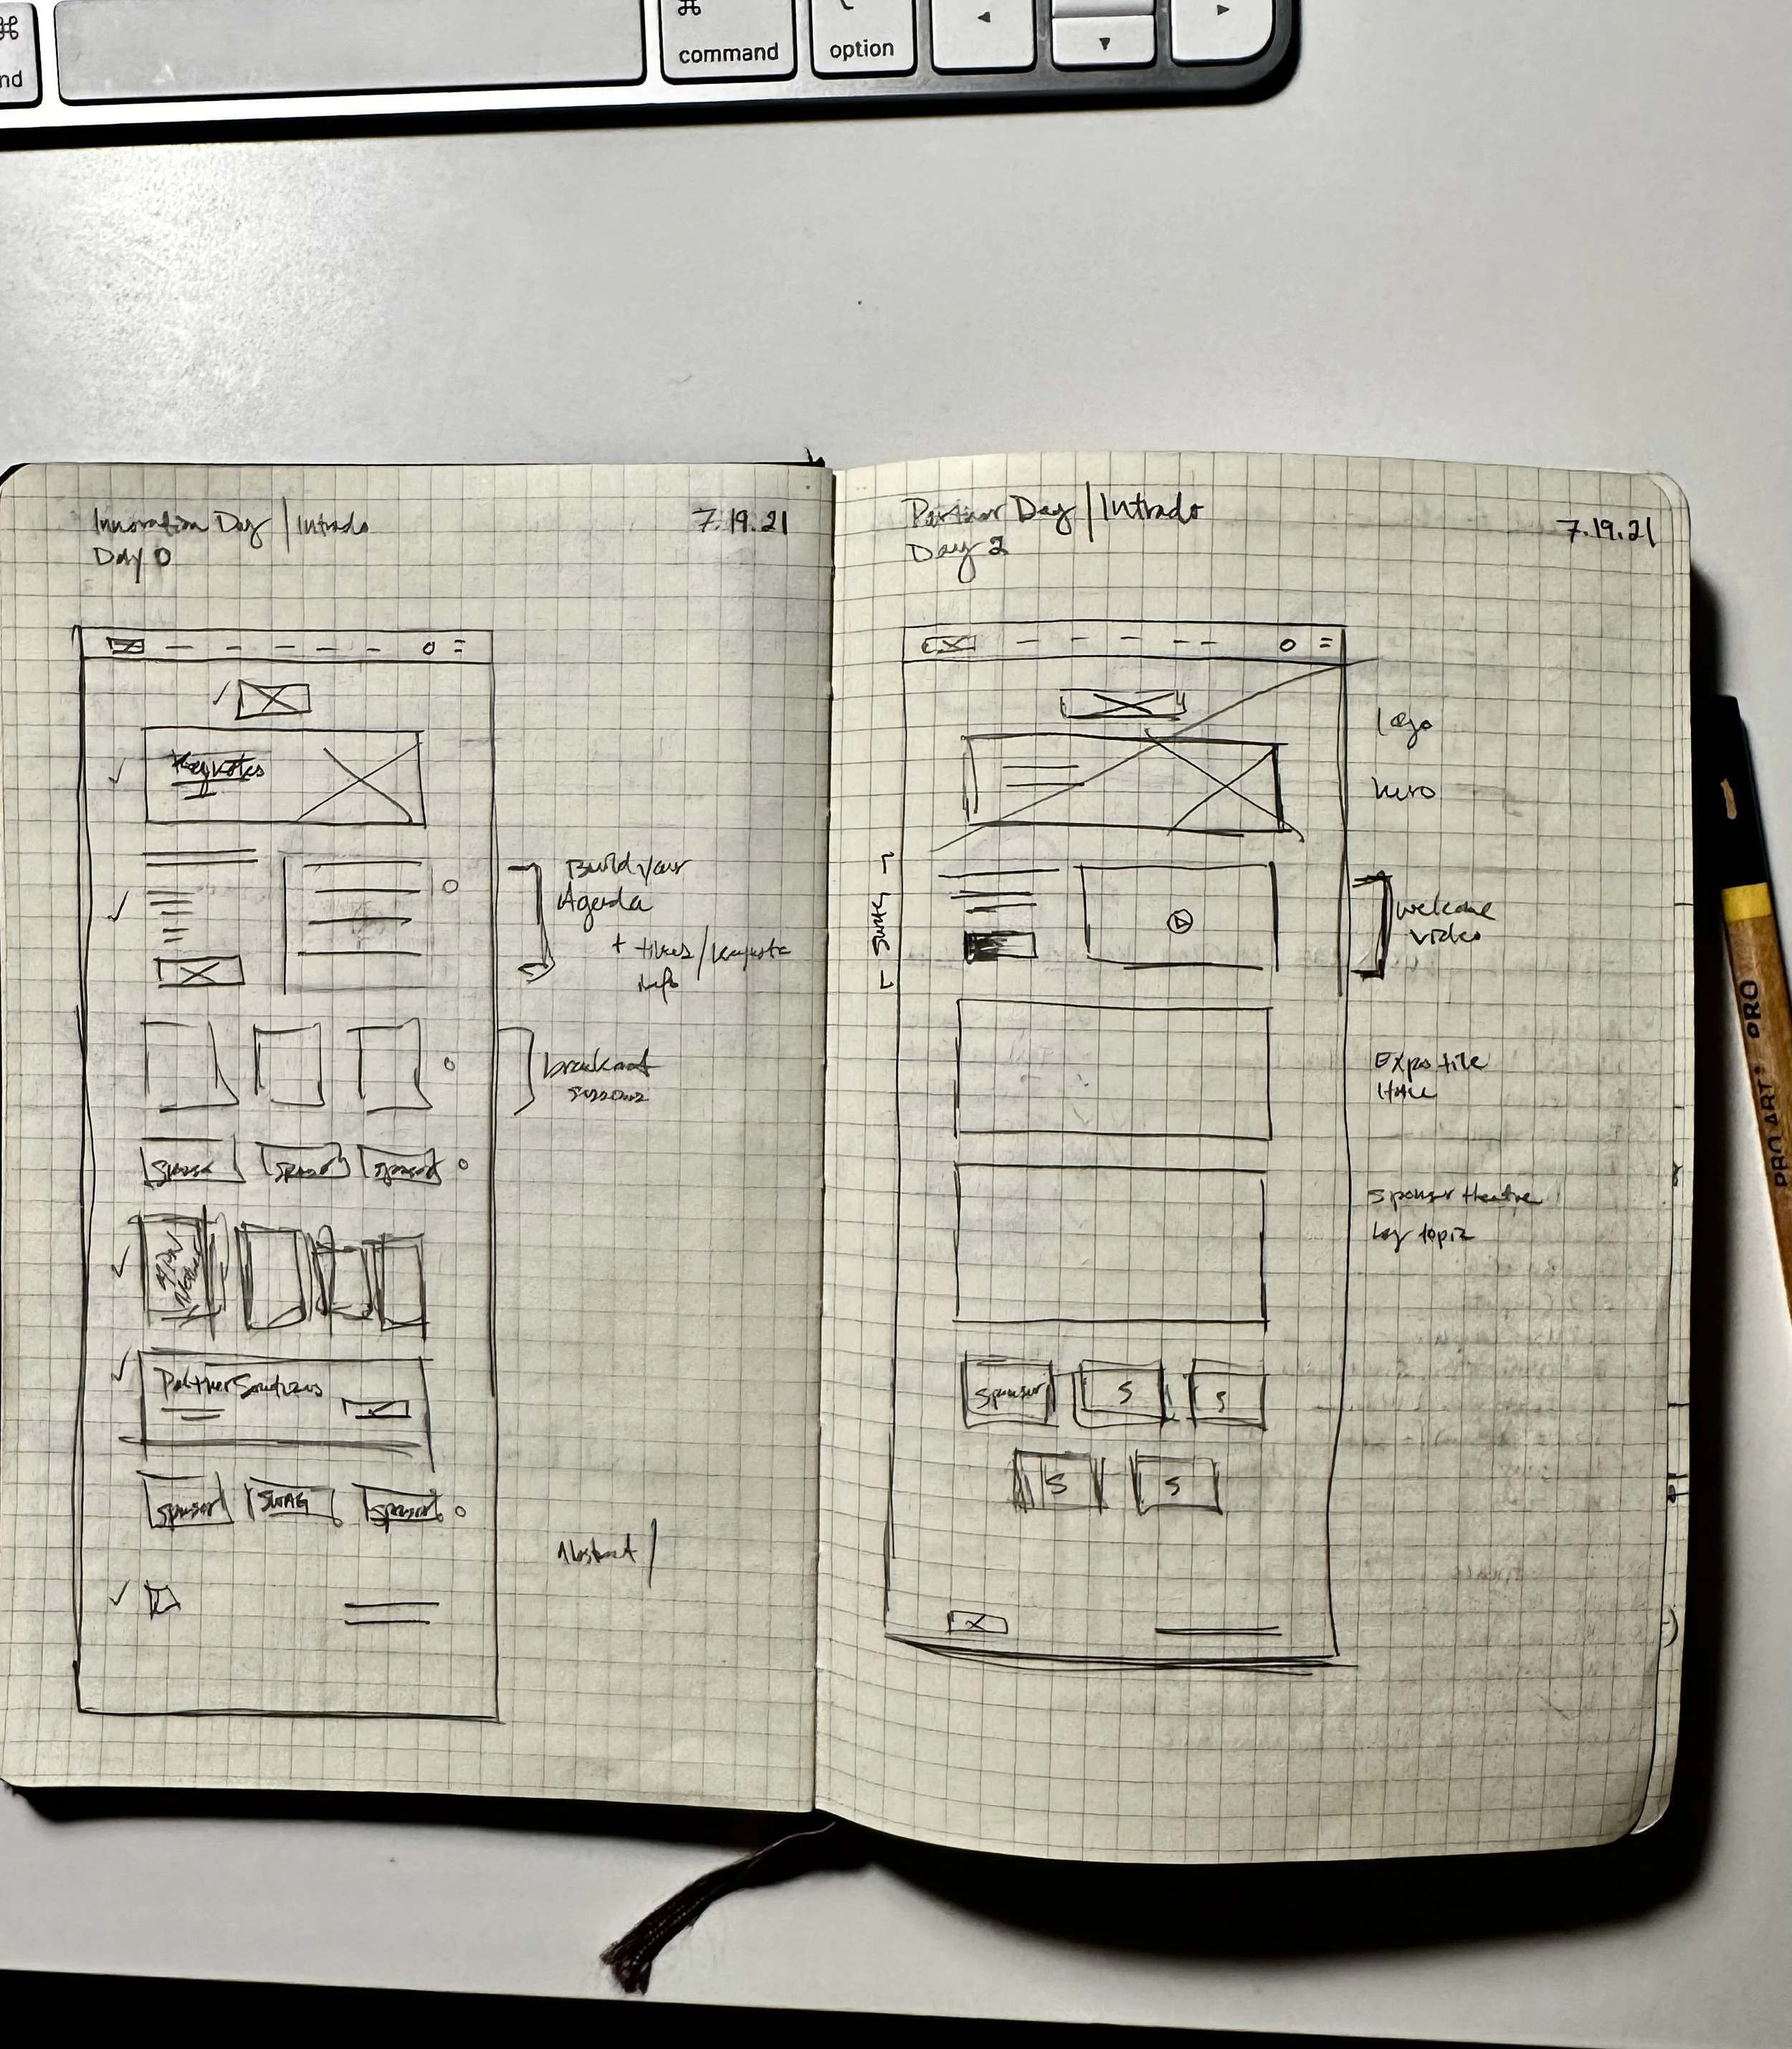 ⌘
command
option
Innovation Day | Intrado
Day 0
7.19.21
Keynotes
Build your
Agenda
+ times/keynote
info
breakout
sessions
sponsor
sponsor
sponsor
Partner Solutions
sponsor
SWAG
sponsor
Abstract |
Partner Day | Intrado
Day 2
7.19.21
logo
hero
welcome
video
Expo tile
sponsor theatre
by topic
sponsor
S
S
S
S
PRO ART PRO